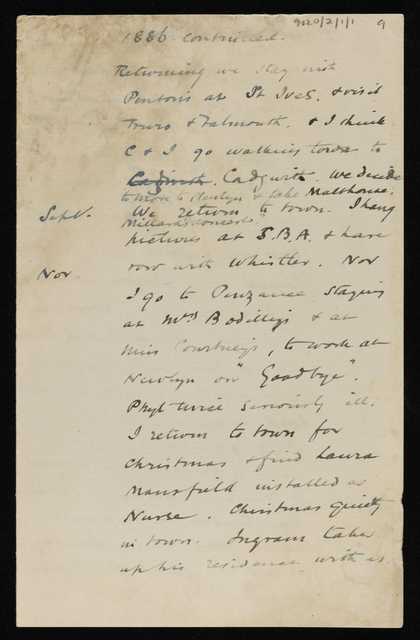 9020/2/1/1 9
1886 continued.
Returning we stay with
Pentons at St Ives. & visit
Truro & Falmouth. & I think
C & I go walking town to
Cadgwith. We decide
to move to Newlyn & take Malthouse.
Sept. We return to town. I hang
Millard's concerts
pictures at S.B.A. & have
Nov. row with Whistler. Nov
I go to Penzance staying
at Mrs Bodilly's & at
Miss Courtney's, to work at
Newlyn on "Goodbye".
Phyl twice seriously ill.
I return to town for
Christmas & find Laura
Mansfield installed as
Nurse. Christmas quietly
in town. Ingram takes
up his residence with us.